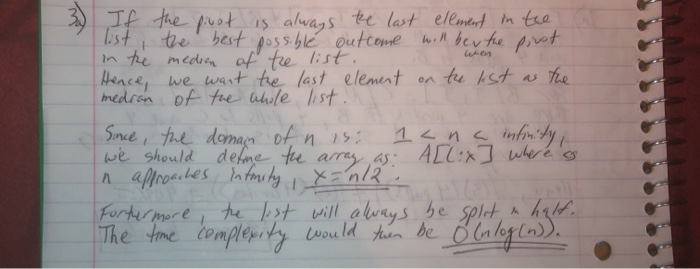 3.) If the pivot is always the last element in the
list, the best possible outcome will be when the pivot
in the median of the list.
Hence, we want the last element on the list as the
median of the whole list.
Since, the domain of n is: 1 < n < infinity,
we should define the array as: A[1:x] where as
n approaches infinity x = n/2.
Furthermore, the list will always be split in half.
The time complexity would then be O(nlog(n)).